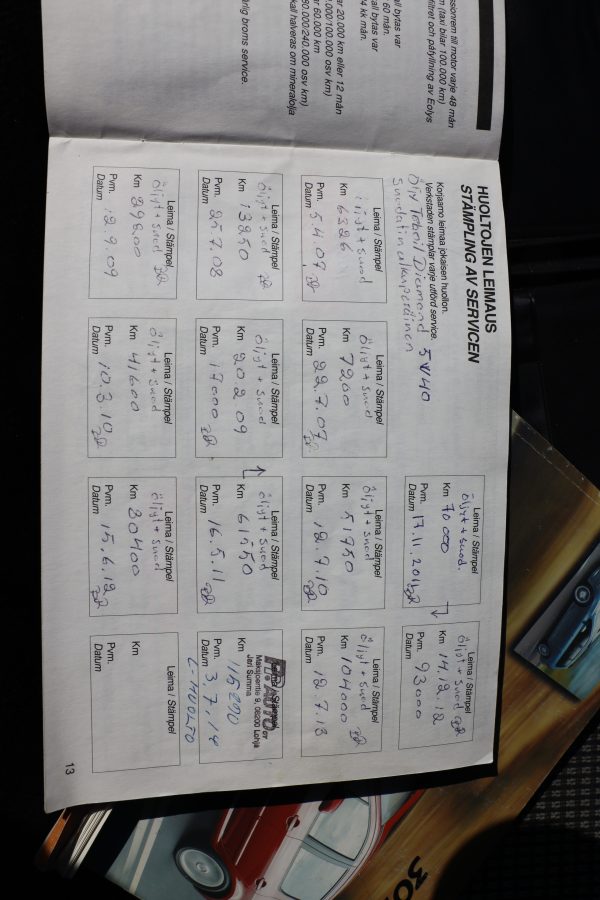 ssionrem till motor varje 48 mån
m (taxi bilar 100.000 km)
filtret och påfyllning av Eolys
all bytas var
60 mån.
all bytas var
4 kk mån.
ar 20.000 km eller 12 mån
.000/100.000 osv km)
ar 60.000 km
80.000/240.000 osv km)
kall halveras om mineralolja
ärlig broms service.
HUOLTOJEN LEIMAUS
STÄMPLING AV SERVICEN
Korjaamo leimaa jokaisen huollon.
Verkstaden stämplar varje utförd service.
Öljy Teboil Diamond 5W40
Suodatin alkuperäinen
Leima / Stämpel
Öljyt + suod.
Km 70000
Pvm. 17.11.2011
Datum
Leima / Stämpel
Öljyt + suod
Km 14.12.12
Pvm. 93000
Datum
Leima / Stämpel
Öljyt + suod
Km 6326
Pvm. 5.4.07
Datum
Leima / Stämpel
Öljyt + suod
Km 7200
Pvm. 22.7.07
Datum
Leima / Stämpel
Öljyt + suod
Km 51750
Pvm. 12.7.10
Datum
Leima / Stämpel
Öljyt + suod
Km 104000
Pvm. 12.7.13
Datum
Leima / Stämpel
Öljyt + suod
Km 13250
Pvm. 25.7.08
Datum
Leima / Stämpel
Öljyt + suod
Km 20209
Pvm. 17000
Datum
Leima / Stämpel
Öljyt + suod
Km 61550
Pvm. 16.5.11
Datum
Leima / Stämpel
AUTO OY
Maksjoentie 9, 08200 Lohja
Jari Summa
Km 115290
Pvm. 3.7.14
Datum
C-HUOLTO
Leima / Stämpel
Öljyt + suod
Km 29200
Pvm. 12.9.09
Datum
Leima / Stämpel
Öljyt + suod
Km 41600
Pvm. 10.3.10
Datum
Leima / Stämpel
Öljyt + suod
Km 80400
Pvm. 15.6.12
Datum
Leima / Stämpel
Km
Pvm.
Datum
13
30